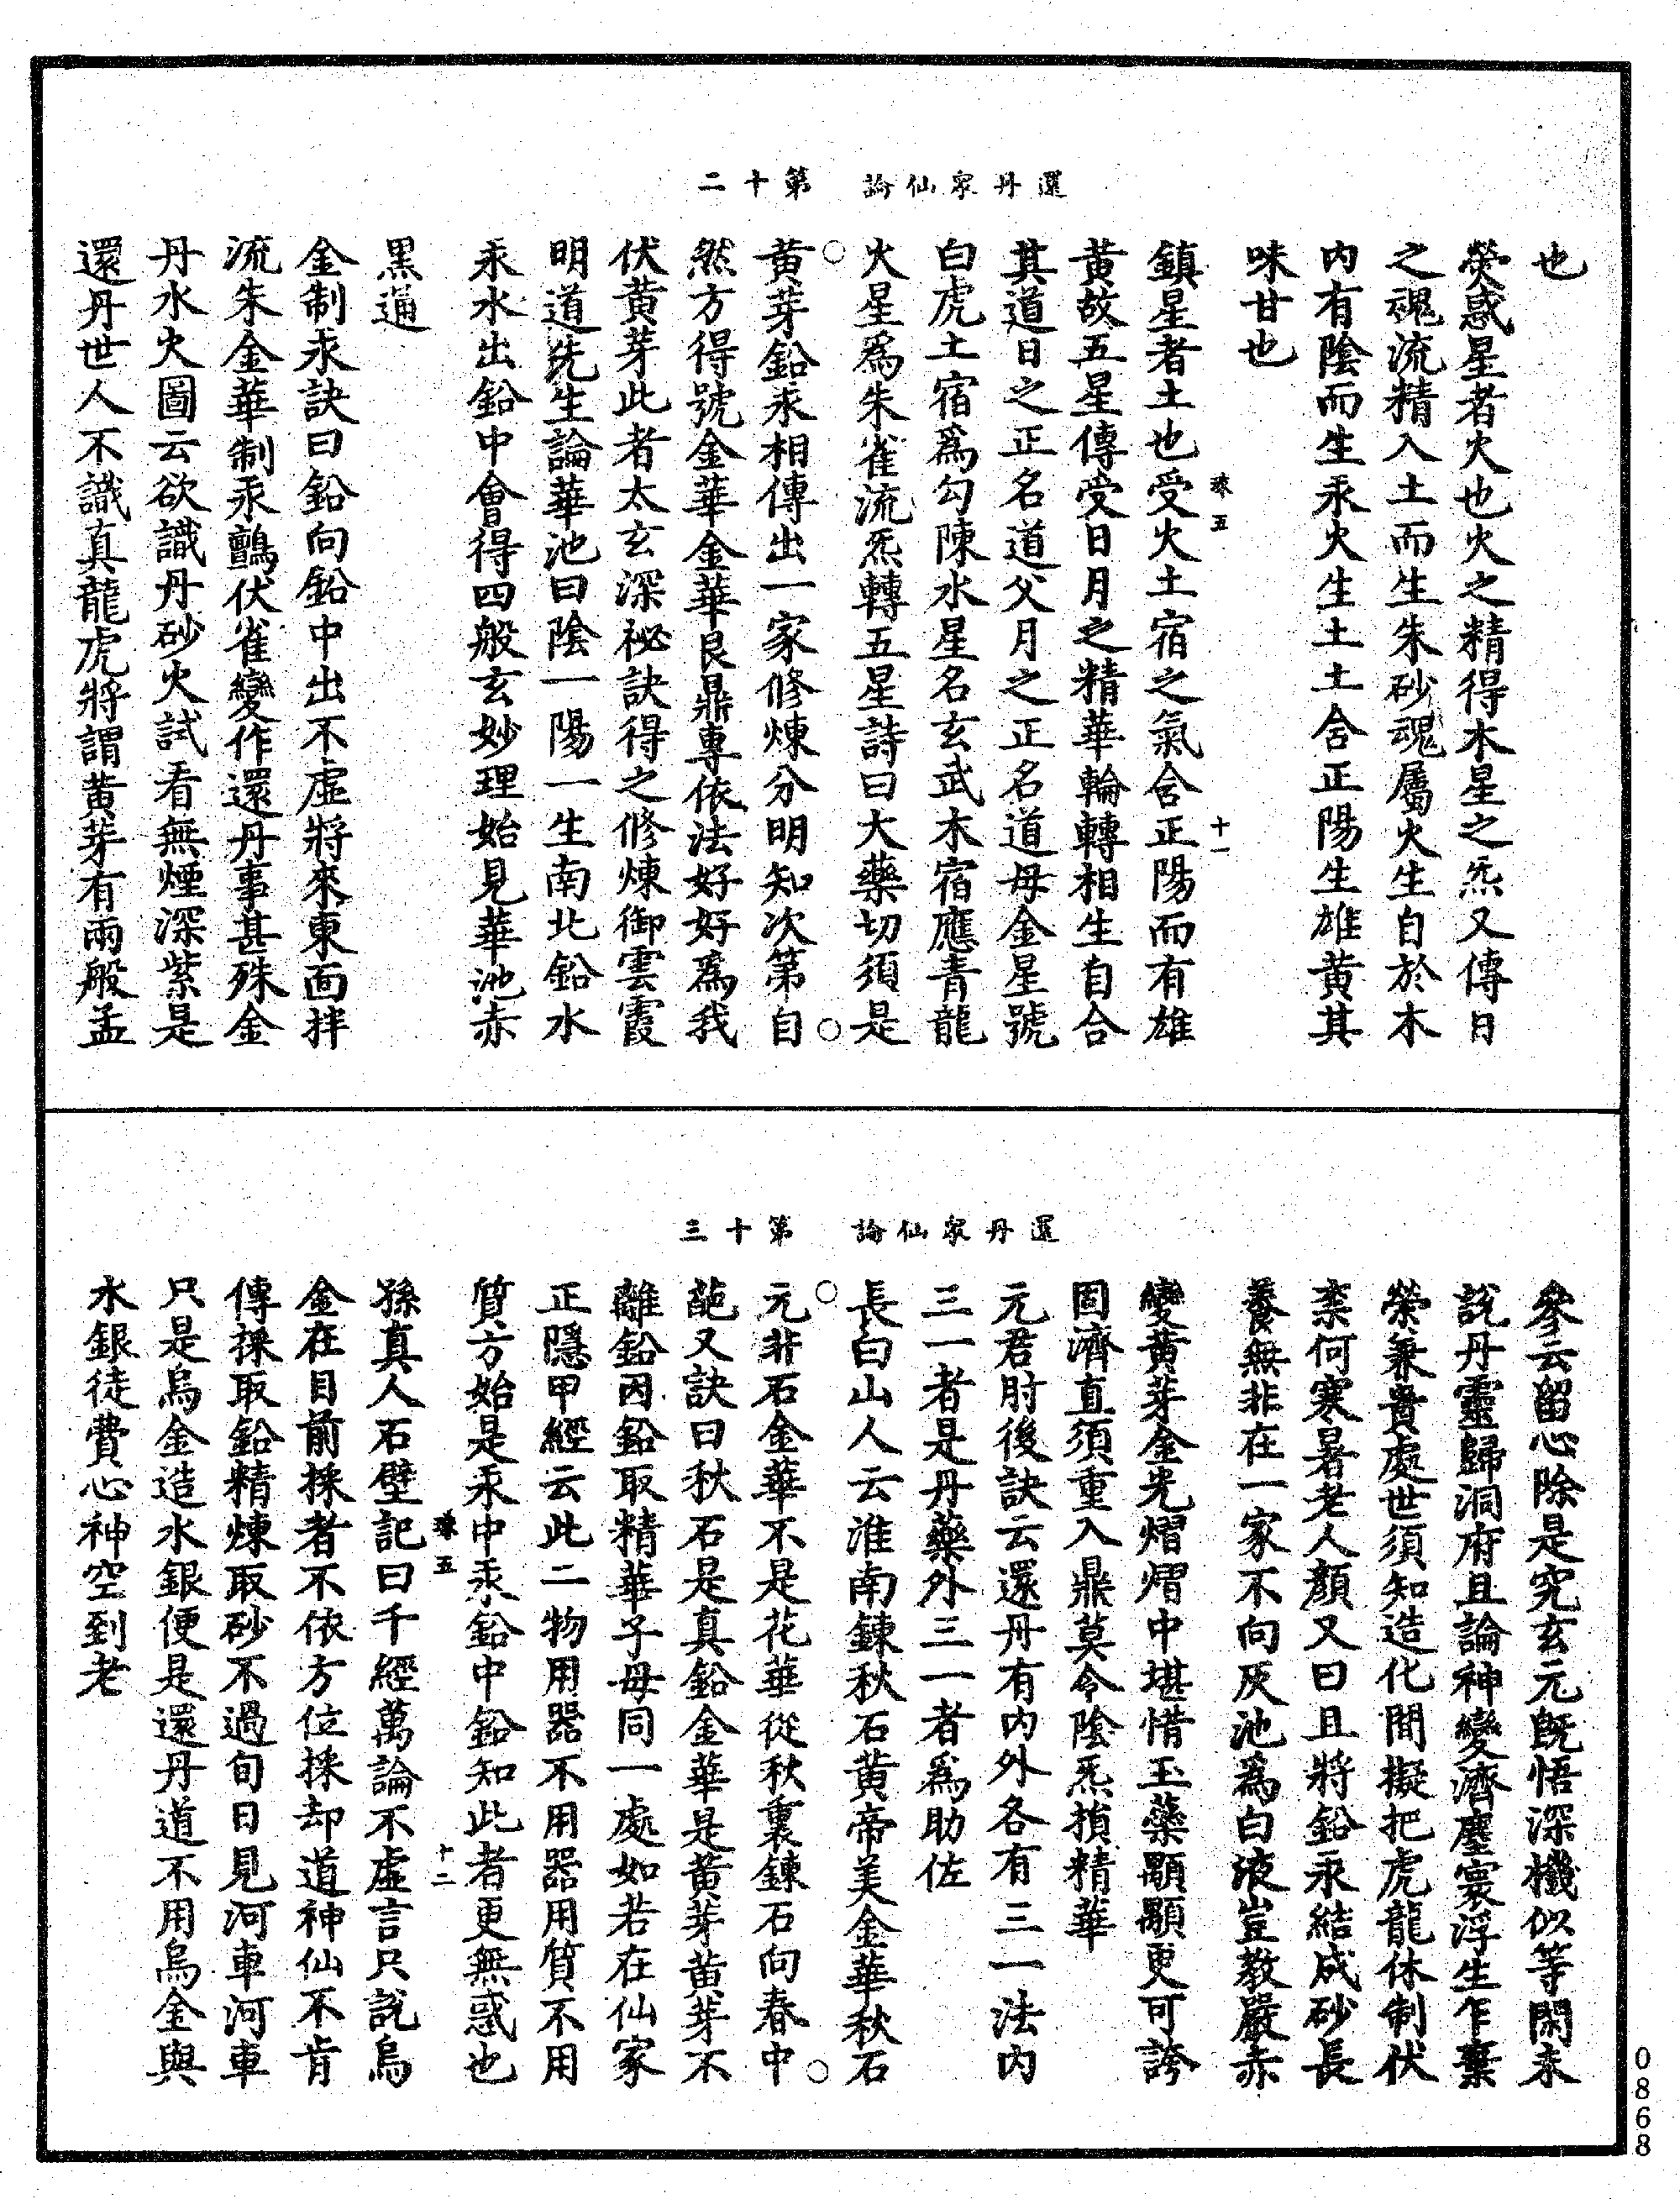 還丹衆仙論　第十二
也
熒惑星者火也火之精得木星之炁又傳日
之魂流精入土而生朱砂魂屬火生自於木
内有陰而生汞火生土土含正陽生雄黄其
味甘也
鎮星者土也受火土宿之氣含正陽而有雄
黄故五星傳受日月之精華輪轉相生自合
其道日之正名道父月之正名道母金星號
白虎土宿爲勾陳水星名玄武木宿應青龍
火星爲朱雀流炁轉五星詩曰大藥切須是
黄芽鉛汞相傳出一家修煉分明知次第自
然方得號金華金華艮鼎專依法好好爲我
伏黄芽此者太玄深祕訣得之修煉御雲霞
明道先生論華池曰陰一陽一生南北鉛水
汞水出鉛中會得四般玄妙理始見華池赤
黑通
金制汞訣曰鉛向鉛中出不虛將來東面拌
流朱金華制汞鸇伏雀變作還丹事甚殊金
丹水火圖云欲識丹砂火試看無煙深紫是
還丹世人不識真龍虎將謂黄芽有兩般孟
珠五
十一
還丹衆仙論　第十三
參云留心除是究玄元旣悟深機似等閑未
說丹靈歸洞府且論神變濟塵寰浮生乍棄
榮兼貴處世須知造化間擬把虎龍休制伏
柰何寒暑老人顔又曰且將鉛汞結成砂長
養無非在一家不向灰池爲白液豈教嚴赤
變黄芽金光熠熠中堪惜玉藥顆顆更可誇
固濟直須重入鼎莫令陰炁損精華
元君肘後訣云還丹有内外各有三一法内
三一者是丹藥外三一者爲助佐
長白山人云淮南鍊秋石黄帝美金華秋石
元非石金華不是花華從秋裏鍊石向春中
葩又訣曰秋石是真鉛金華是黄芽黄芽不
離鉛因鉛取精華子母同一處如若在仙家
正隱甲經云此二物用器不用器用質不用
質方始是汞中汞鉛中鉛知此者更無惑也
孫真人石壁記曰千經萬論不虛言只說烏
金在目前採者不依方位採却道神仙不肯
傳採取鉛精煉取砂不過旬日見河車河車
只是烏金造水銀便是還丹道不用烏金與
水銀徒費心神空到老
珠五
十二
0868